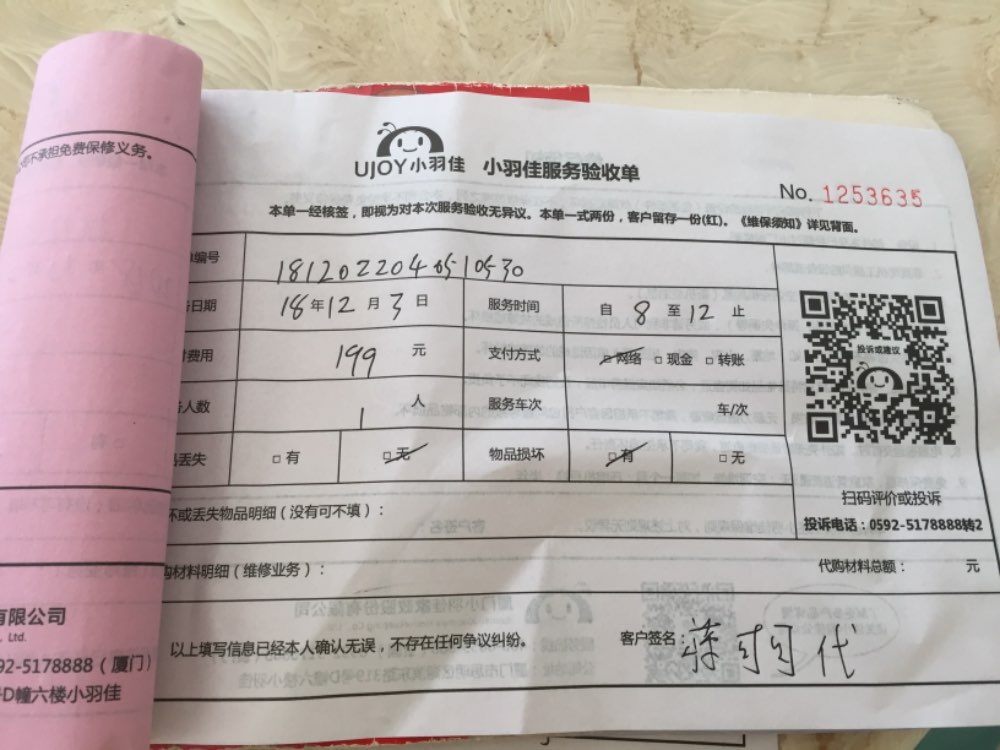 不承担免费保修义务。
UJOY小羽佳 小羽佳服务验收单
No. 1253635
本单一经核签，即视为对本次服务验收无异议。本单一式两份，客户留存一份(红)。《维保须知》详见背面。
编号 1812022040510530
日期 18年12月3日 服务时间 自8至12止
费用 199元 支付方式 □网络 □现金 □转账
人数 1人 服务车次 车/次
丢失 □有 □无 物品损坏 □有 □无
投诉或建议
扫码评价或投诉
投诉电话：0592-5178888转2
坏或丢失物品明细（没有可不填）：
购材料明细（维修业务）： 代购材料总额： 元
以上填写信息已经本人确认无误，不存在任何争议纠纷。 客户签名：蒋 代
有限公司
, Ltd.
92-5178888（厦门）
号D幢六楼小羽佳